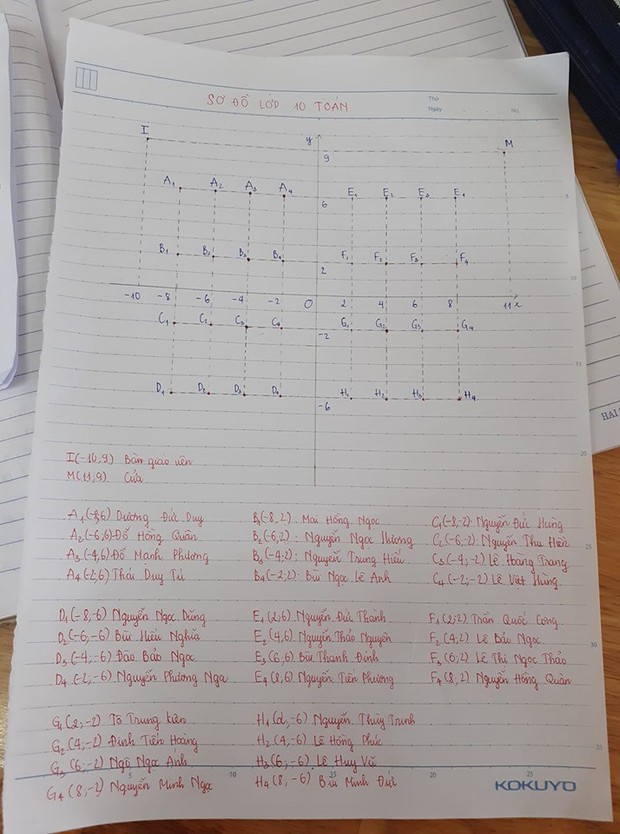 SƠ ĐỒ LỚP 10 TOÁN
Thứ
Ngày No.
I y M
9
A₁ A₂ A₃ A₄ E₁ E₂ E₃ E₄
6
B₁ B₂ B₃ B₄ F₁ F₂ F₃ F₄
2
-10 -8 -6 -4 -2 O 2 4 6 8 11 x
C₁ C₂ C₃ C₄ G₁ G₂ G₃ G₄
-2
D₁ D₂ D₃ D₄ H₁ H₂ H₃ H₄
-6
I(-10,9) Bàn giáo viên
M(11,9). Cửa
A₁(-8,6) Dương Đức Duy
A₂(-6,6) Đỗ Hồng Quân
A₃(-4,6) Đỗ Mạnh Phương
A₄(-2,6) Thái Duy Tú
B₁(-8,2). Mai Hồng Ngọc
B₂(-6,2) : Nguyễn Ngọc Hương
B₃(-4,2) : Nguyễn Trung Hiếu
B₄(-2,2): Bùi Ngọc Lê Anh
C₁(-8,-2). Nguyễn Đức Hưng
C₂(-6,-2) Nguyễn Thu Hiền
C₃(-4,-2) Lê Hoàng Trang
C₄(-2,-2) Lê Việt Hùng
D₁(-8,-6) Nguyễn Ngọc Dũng
D₂(-6,-6) Bùi Hiếu Nghĩa
D₃(-4,-6) Đào Bảo Ngọc
D₄(-2,-6) Nguyễn Phương Nga
E₁(2,6) Nguyễn Đức Thành
E₂(4,6) Nguyễn Thảo Nguyên
E₃(6,6) Bùi Thanh Đính
E₄(8,6) Nguyễn Tiến Phương
F₁(2,2) Trần Quốc Công
F₂(4,2) Lê Bảo Ngọc
F₃(6,2) Lê Thị Ngọc Thảo
F₄(8,2) Nguyễn Hồng Quân
G₁(2,-2) Tô Trung Kiên
G₂(4,-2) Đinh Tiên Hoàng
G₃(6,-2) Ngô Ngọc Anh
G₄(8,-2) Nguyễn Minh Ngọc
H₁(2,-6) Nguyễn Thùy Trinh
H₂(4,-6) Lê Hồng Phúc
H₃(6,-6) Lê Huy Vũ
H₄(8,-6) Bùi Minh Đức
5 10 15 20 25
KOKUYO